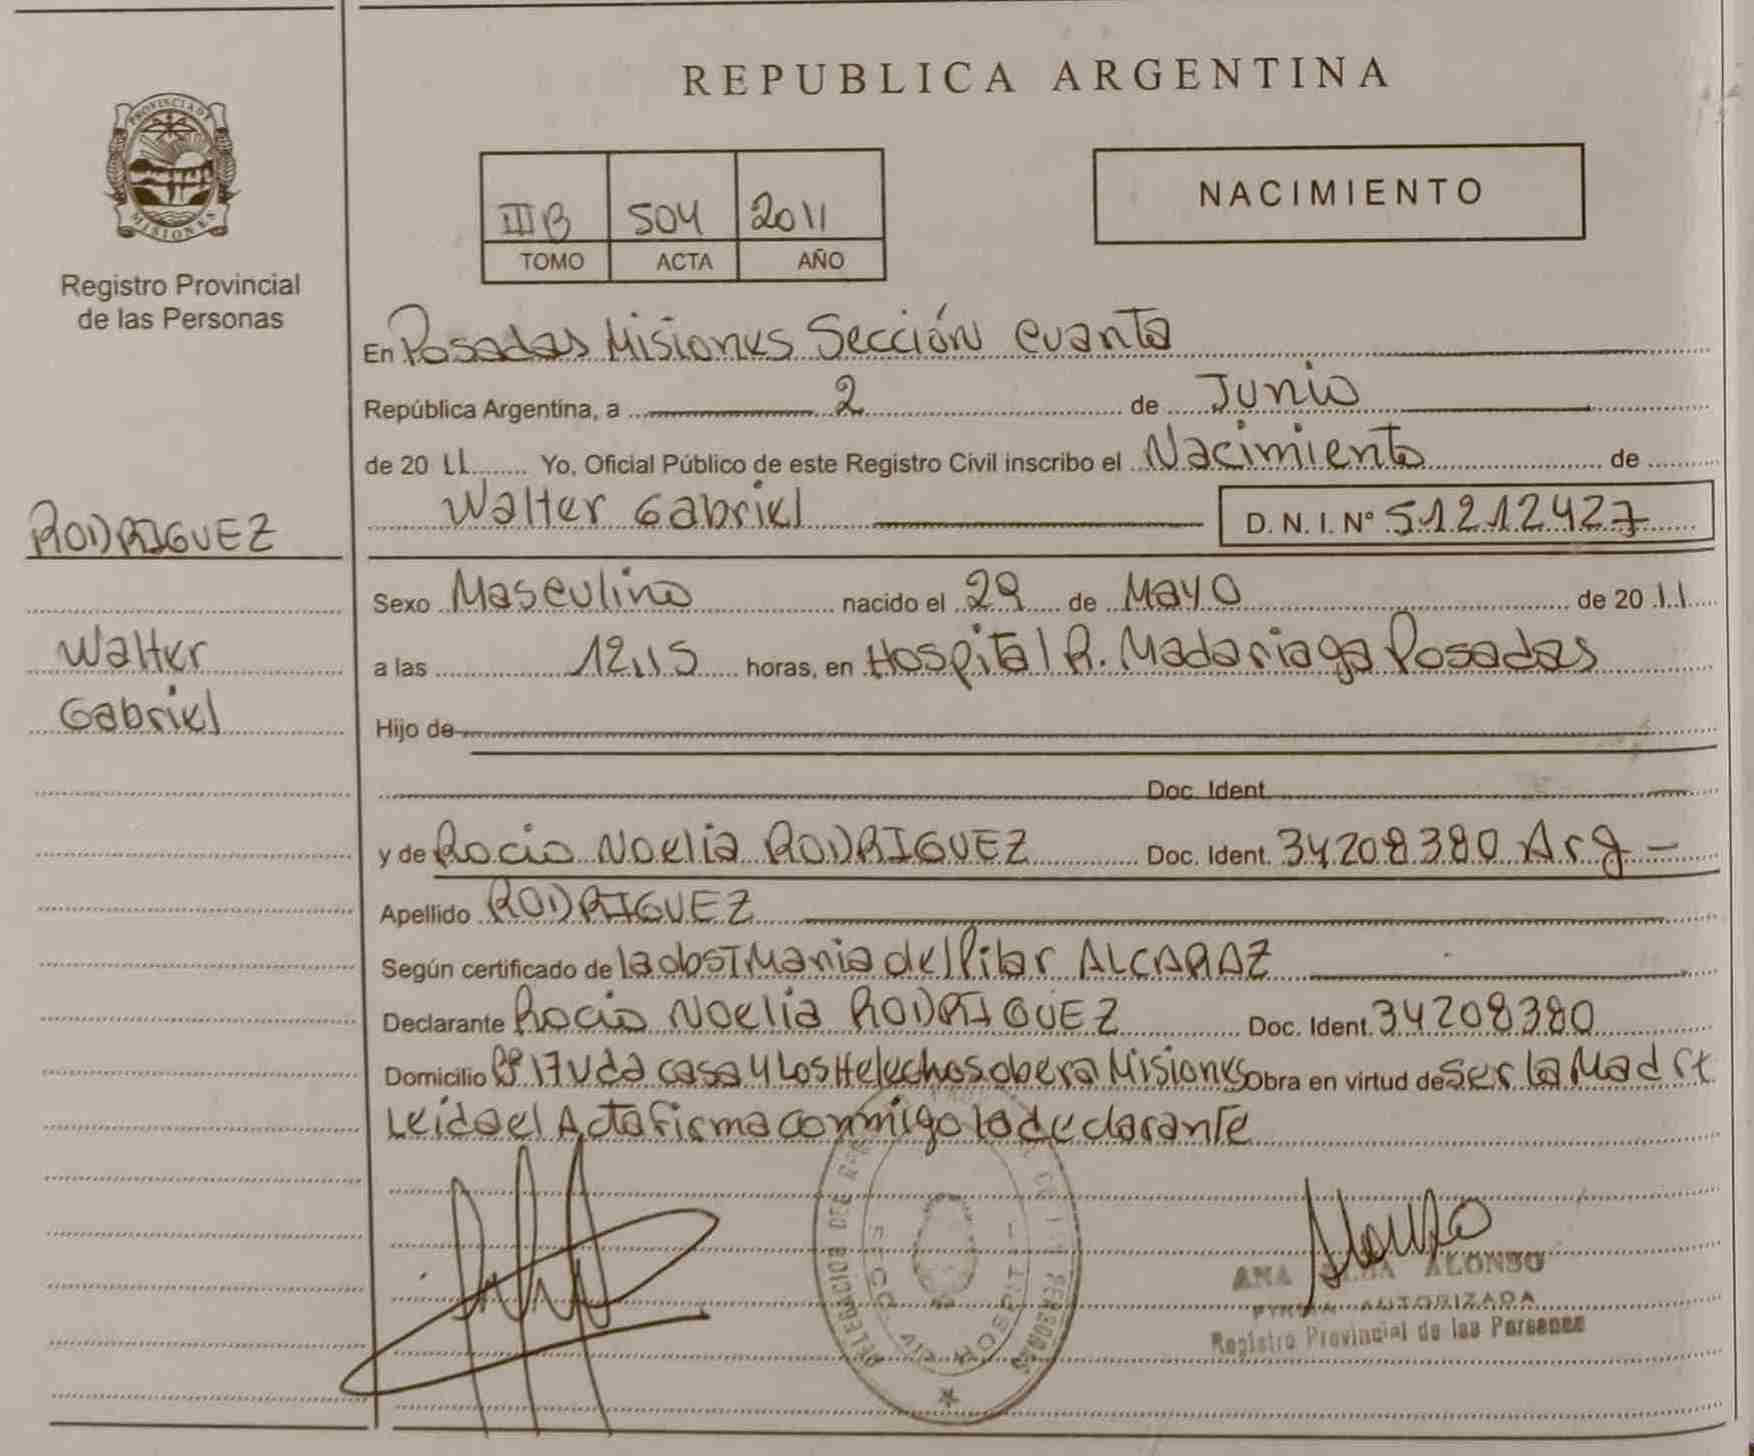 PROVINCIA DE
MISIONES
Registro Provincial
de las Personas
RODRIGUEZ
Walter
Gabriel
REPUBLICA ARGENTINA
III B 504 2011
TOMO ACTA AÑO
NACIMIENTO
En Posadas Misiones Sección cuarta
República Argentina, a 2 de Junio
de 20 11 Yo, Oficial Público de este Registro Civil inscribo el Nacimiento de
Walter Gabriel D. N. I. N° 51212427
Sexo Masculino nacido el 29 de Mayo de 20 11
a las 12,15 horas, en Hospital R. Madariaga Posadas
Hijo de
Doc. Ident.
y de Rocio Noelia RODRIGUEZ Doc. Ident. 34208380 Arg -
Apellido RODRIGUEZ
Según certificado de la obst Maria del Pilar ALCARAZ
Declarante Rocio Noelia RODRIGUEZ Doc. Ident. 34208380
Domicilio Bº 17 Vdd casa 4 Los Helechos obera Misiones Obra en virtud de ser la Madre
Leida el Acta firma conmigo la declarante
ANA ALONSO
FIRMA AUTORIZADA
Registro Provincial de las Personas